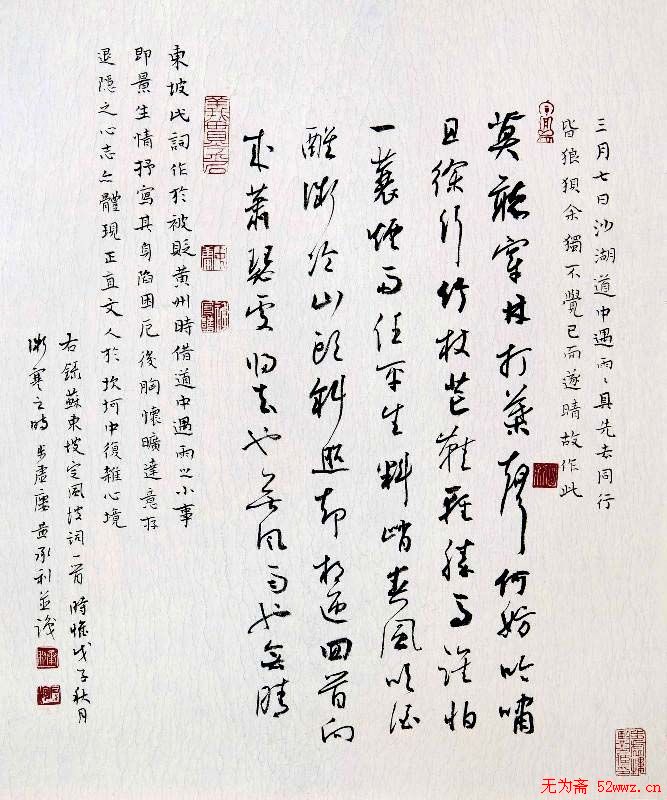 三月七日沙湖道中遇雨〻具先去同行
皆狼狽余獨不覺已而遂晴故作此
莫聽穿林打葉聲何妨吟嘯
且徐行竹杖芒鞋輕勝馬誰怕
一蓑煙雨任平生料峭春風吹酒
醒微冷山頭斜照却相迎回首向
來蕭瑟處歸去也無風雨也無晴
東坡氏詞作於被貶黃州時借道中遇雨之小事
即景生情抒寫其身陷困厄後胸懷曠達意存
退隱之心志亦體現正直文人於坎坷中復雜心境
右錄蘇東坡定風波詞一首 時惟戊子秋月
微寒之時 虛廬黃承利並識
无为斋 52wwz.cn